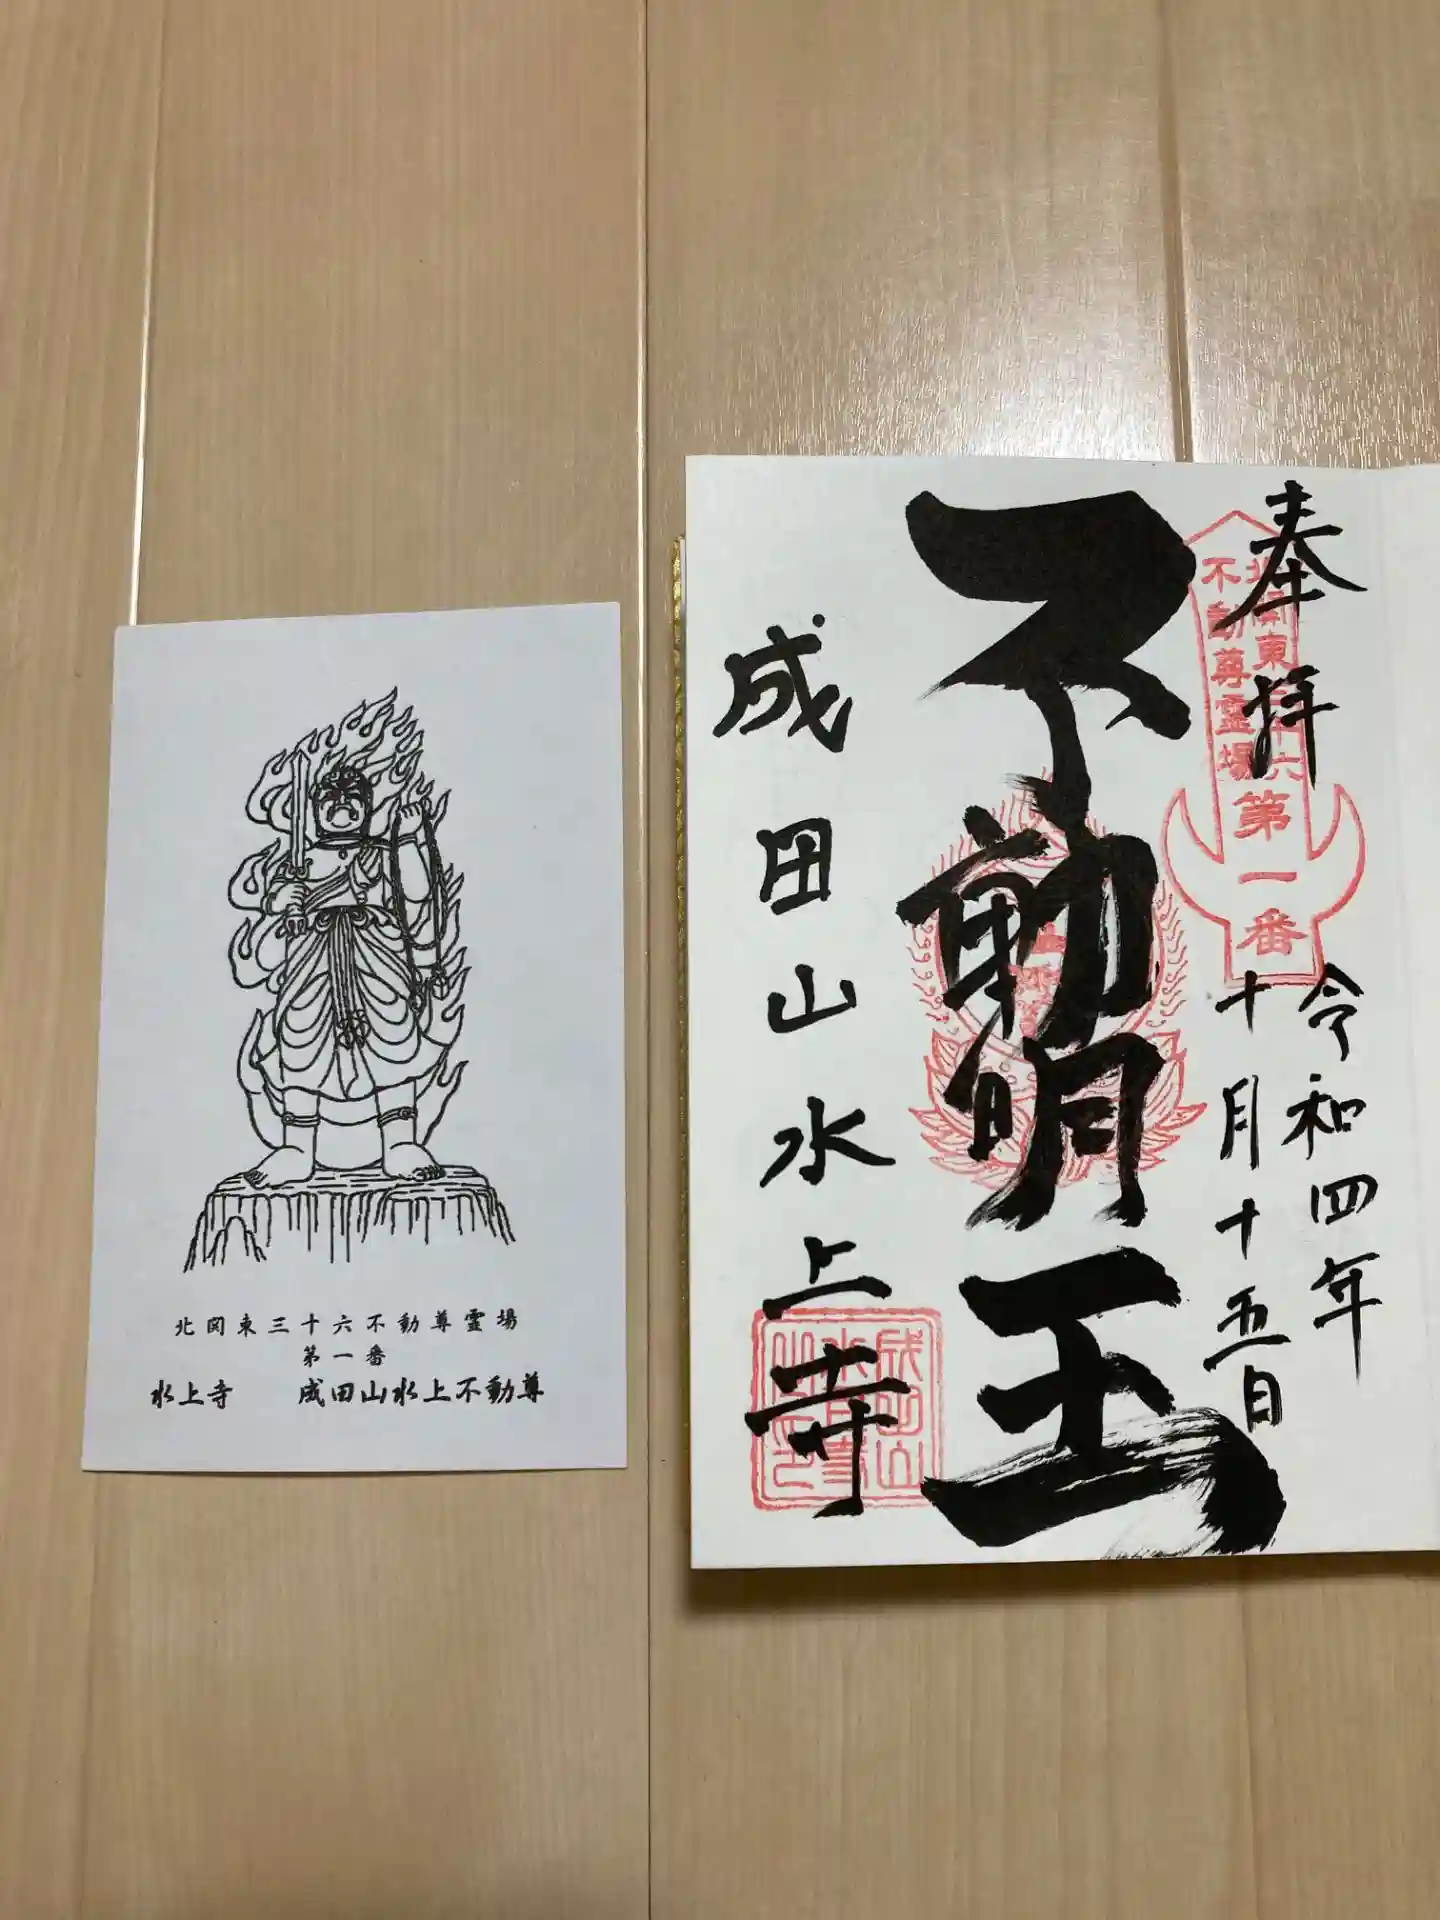 北関東三十六不動尊霊場
第一番
水上寺 成田山水上不動尊
奉拝
北関東三十六
不動尊霊場
第一番
令和四年
十月十五日
不動明王
成田山水上寺